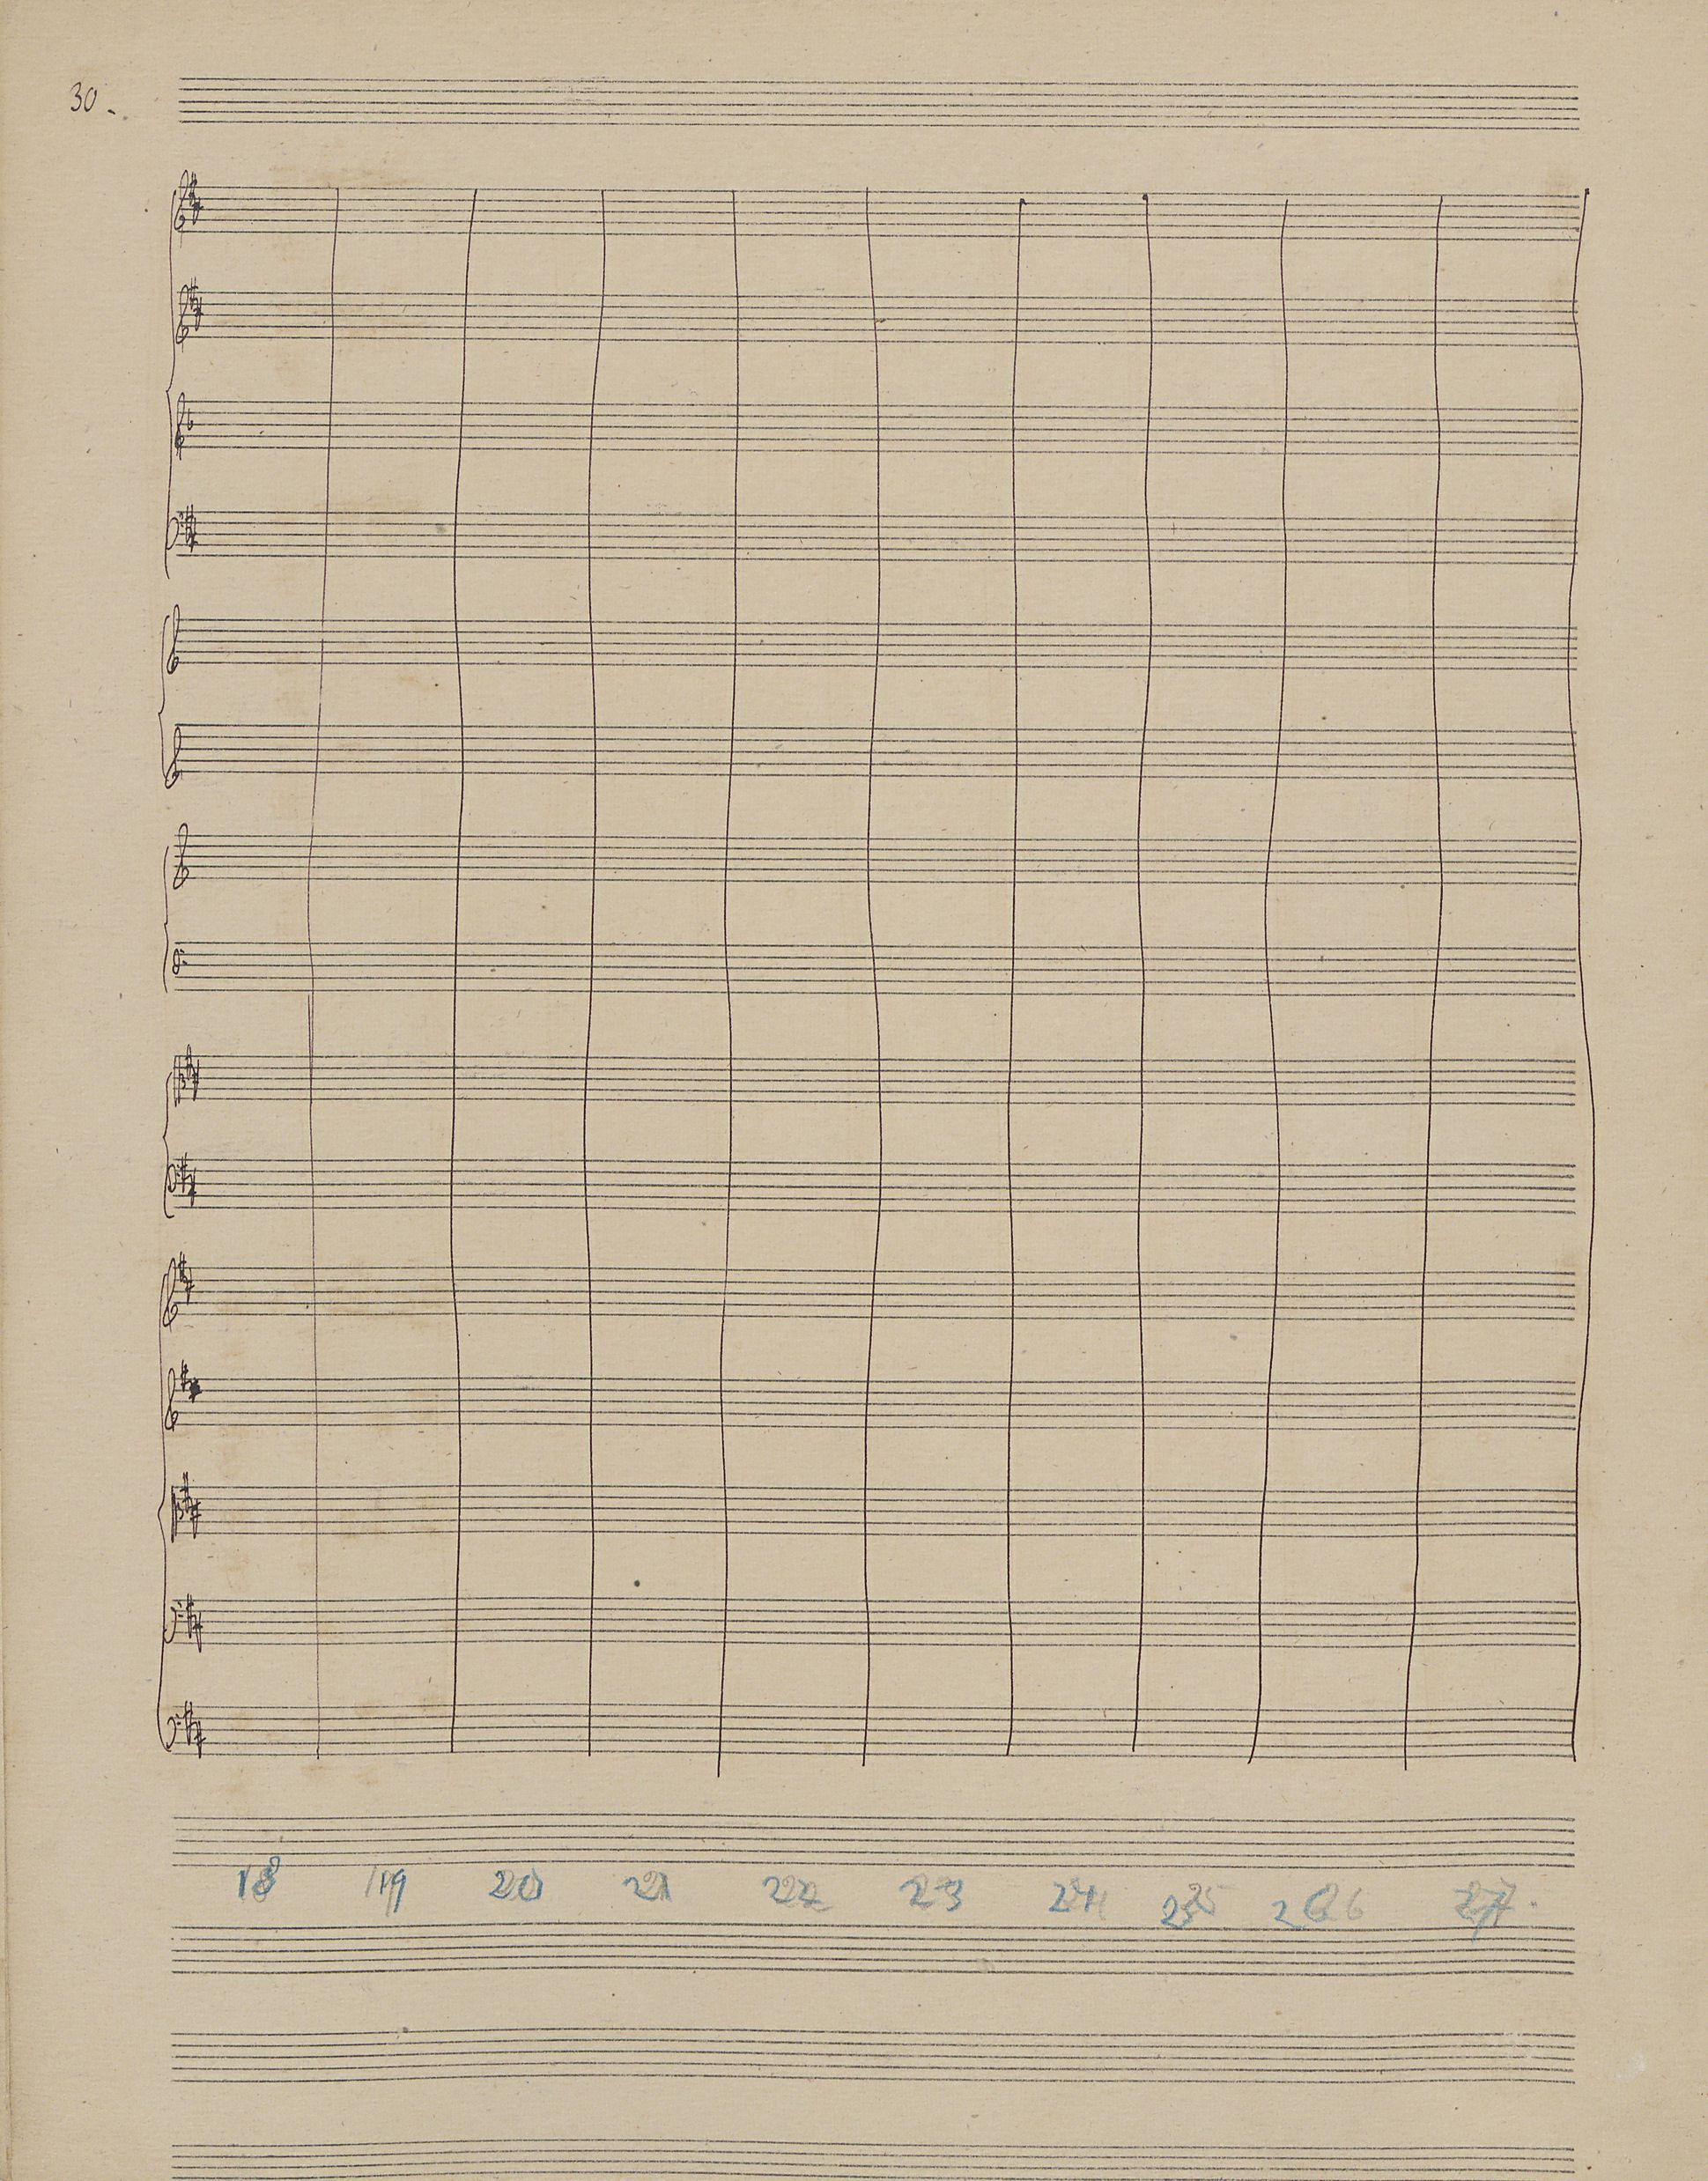 30-
18 19 20 21 22 23 24 25 26 27.